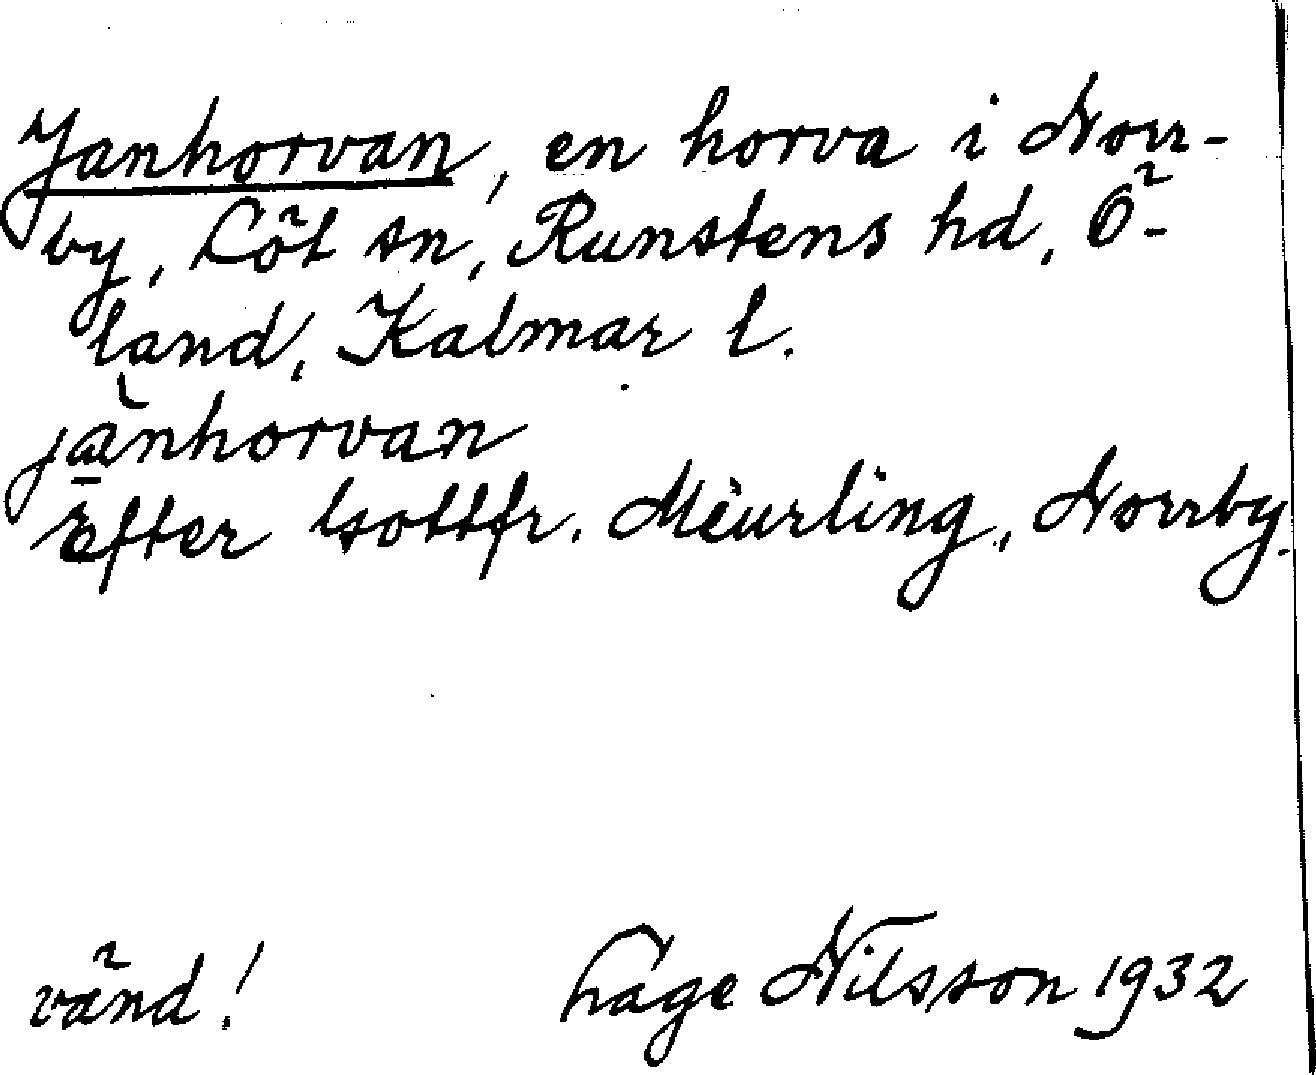 Janhorvan, en horva i Norr-
by, Löt sn, Runstens hd, Ö-
land, Kalmar l.
jànhorvan
Efter Gottfr. Meurling, Norrby.
vänd! Låge Nilsson 1932